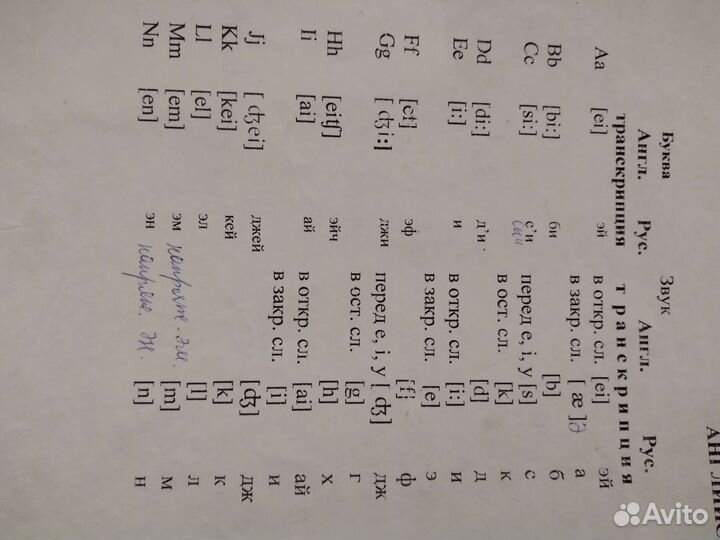 Буква Звук
Англ. Рус. Англ. Рус.
транскрипция транскрипция
Aa [ei] эй в откр. сл. [ei] эй
в закр. сл. [æ] а
Bb [bi:] би [b] б
Cc [si:] с'и перед e, i, y [s] с
в ост. сл. [k] к
Dd [di:] д'и [d] д
Ee [i:] и в откр. сл. [i:] и
в закр. сл. [e] э
Ff [ef] эф [f] ф
Gg [ʤi:] джи перед e, i, y [ʤ] дж
в ост. сл. [g] г
Hh [eitʃ] эйч [h] х
Ii [ai] ай в откр. сл. [ai] ай
в закр. сл. [i] и
Jj [ʤei] джей [ʤ] дж
Kk [kei] кей [k] к
Ll [el] эл [l] л
Mm [em] эм [m] м
Nn [en] эн [n] н
Avito